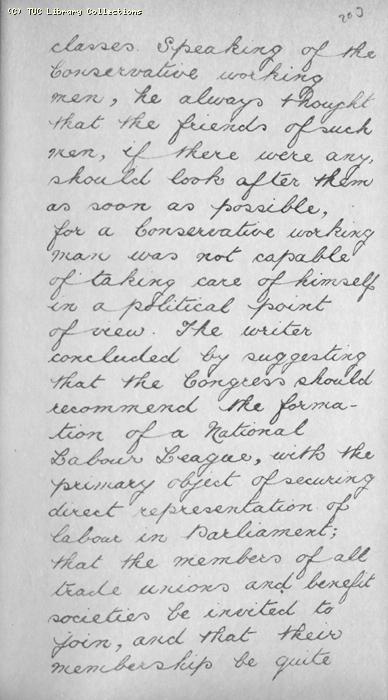 (C) TUC Library Collections
203
classes. Speaking of the
Conservative working
men, he always thought
that the friends of such
men, if there were any,
should look after them
as soon as possible,
for a Conservative working
man was not capable
of taking care of himself
in a political point
of view. The writer
concluded by suggesting
that the Congress should
recommend the forma-
tion of a National
Labour League, with the
primary object of securing
direct representation of
labour in Parliament;
that the members of all
trade unions and benefit
societies be invited to
join, and that their
membership be quite